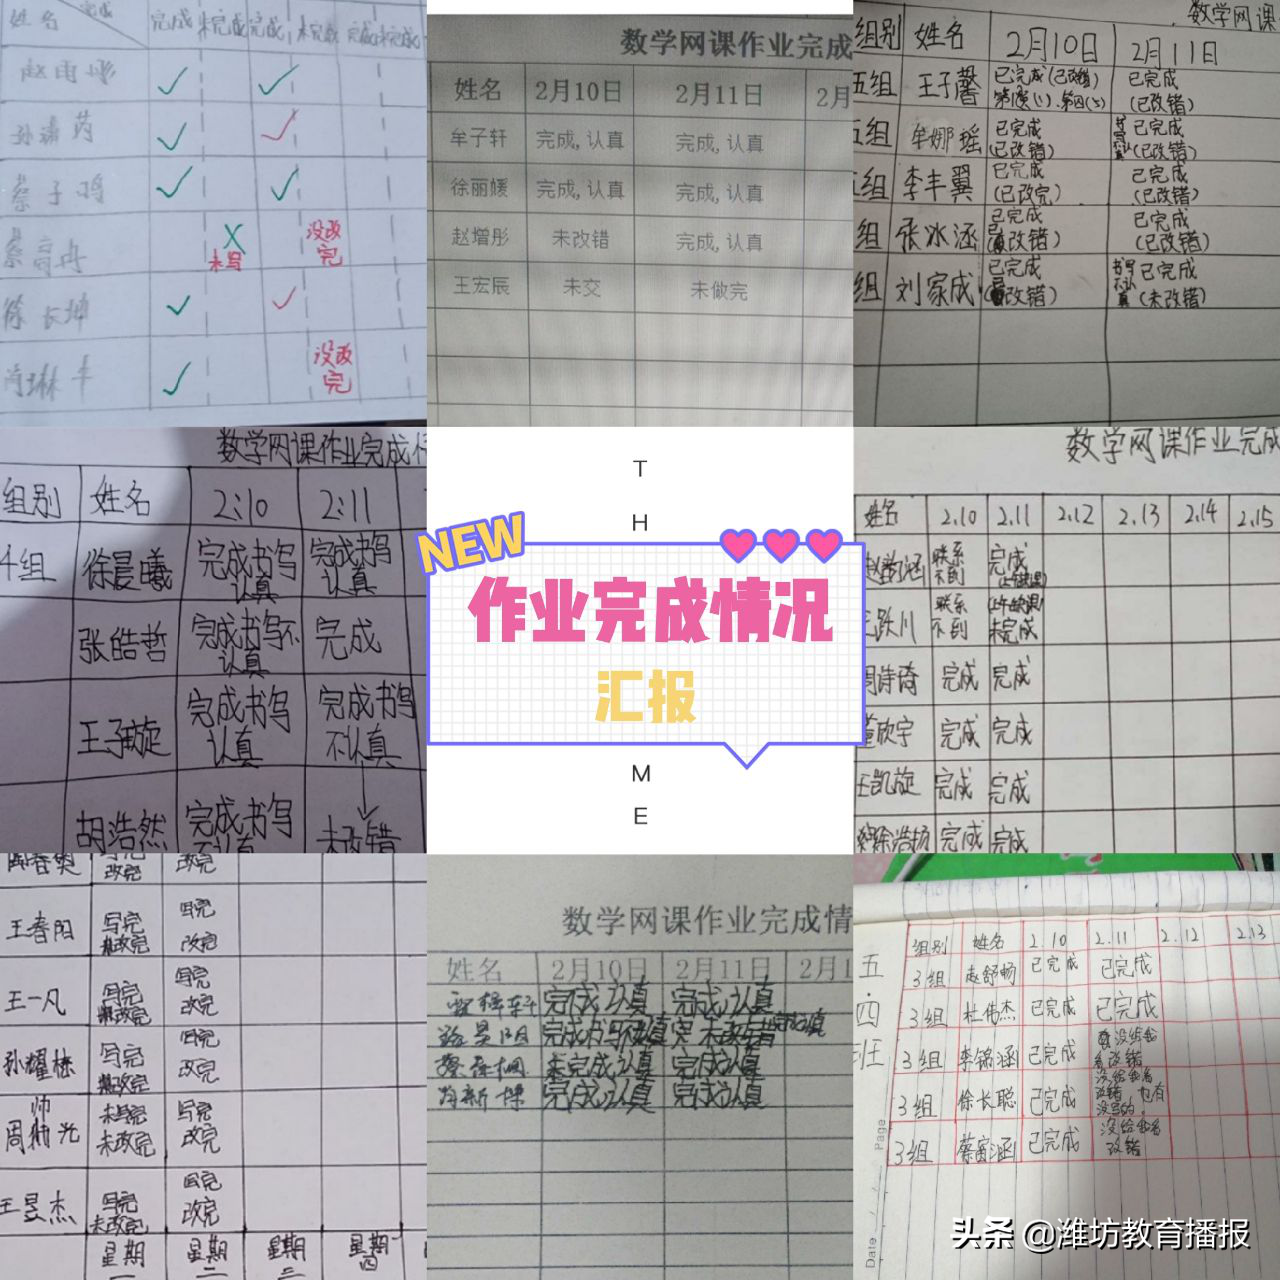 姓名
完成
完成
未完成
完成
未完成
完成
未完成
蔡子鸣
未写
没改完
徐长坤
没改完
数学网课作业完成
姓名 2月10日 2月11日 2月
牟子轩 完成,认真 完成,认真
徐丽媛 完成,认真 完成,认真
赵增彤 未改错 完成,认真
王宏辰 未交 未做完
数学网课
组别 姓名 2月10日 2月11日
五组 王子馨 已完成(已改错) 已完成
(已改错)
五组 牟娜瑶 已完成 已完成
(已改错) (已改错)
五组 李丰翼 已完成 已完成
(已改完) (已改错)
组 张冰涵 已完成 已完成
改错) (已改错)
组 刘家成 已完成 书写不认真 已完成
改错) (未改错)
数学网课作业完成
组别 姓名 2:10 2:11
4组 徐晨曦 完成书写认真 完成书写认真
张皓哲 完成书写不认真 完成
王子璇 完成书写认真 完成书写不认真
胡浩然 完成书写不认真 未改错
T
H
NEW
作业完成情况
汇报
M
E
数学网课作业完成
姓名 2.10 2.11 2.12 2.13 2.14 2.15
联系不到 完成
联系不到 未完成
周诗琦 完成 完成
董欣宇 完成 完成
王凯旋 完成 完成
徐浩扬 完成 完成
改完 改完
王春阳 写完 写完
未改完 改完
王一凡 写完 写完
未改完 改完
孙耀栋 写完 写完
未改完 改完
周帅光 未写完 写完
未改完 改完
王昱杰 写完 写完
未改完 改完
星期一 星期二 星期三 星期四
数学网课作业完成情
姓名 2月10日 2月11日 2月1
完成,认真 完成,认真
完成书写不认真 未改错
未完成,认真 完成,认真
完成,认真 完成,认真
五四班
组别 姓名 2.10 2.11 2.12 2.13
3组 赵舒畅 已完成 已完成
3组 杜伟杰 已完成 已完成
3组 李锦涵 已完成 没给我看改错
3组 徐长聪 已完成 没给我看改错,也有没写的。
3组 蔡寅涵 已完成 没给我看改错
Page
Date
头条 @潍坊教育播报